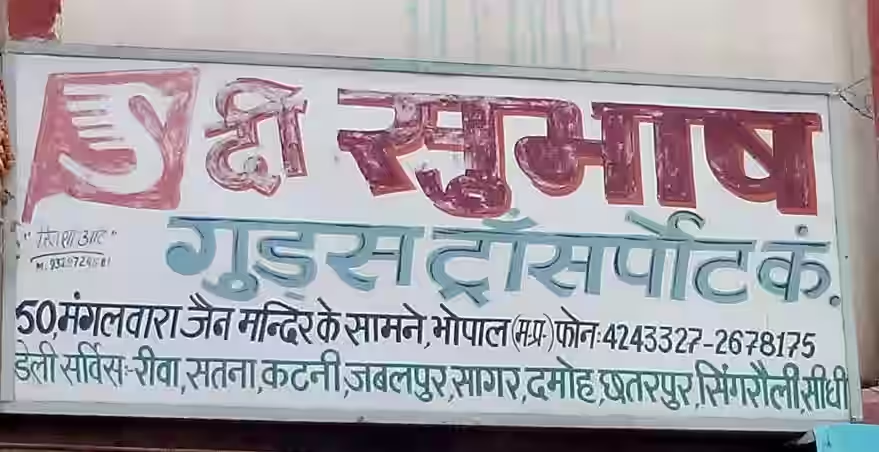 दी सुभाष
गुड्स ट्रॉसर्पोट कं.
50,मंगलवारा जैन मन्दिर के सामने,भोपाल (म.प्र.) फोन:4243327-2678175
डेली सर्विस:-रीवा,सतना,कटनी,जबलपुर,सागर,दमोह,छतरपुर,सिंगरौली,सीधी